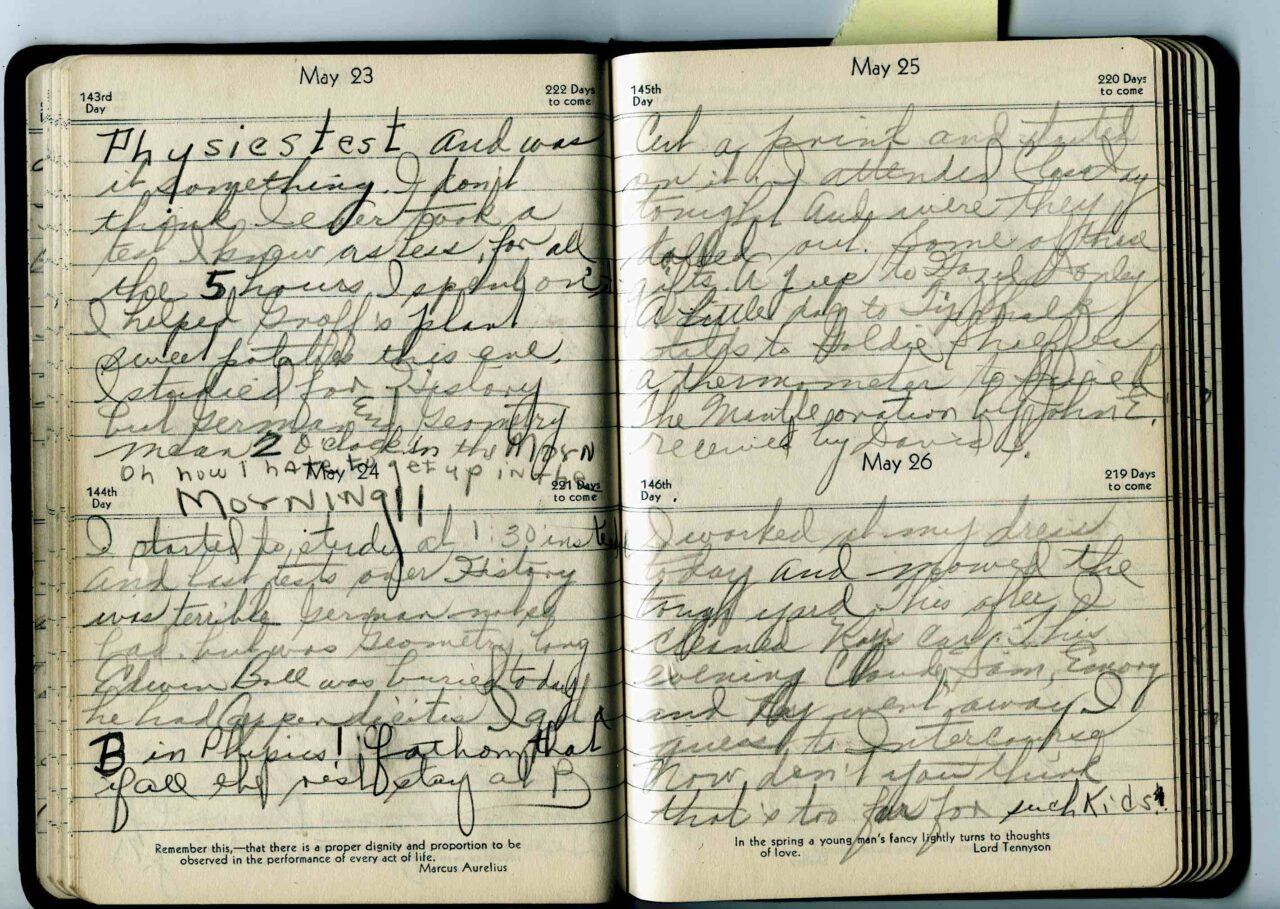 May 23
143rd
Day
222 Days
to come
Physics test and was
it something. I don't
think I ever took a
test I knew as less, for all
the 5 hours I spent on it
I helped Groff's plant
sweet potatoes this eve.
I studied for History
but German and Geometry
mean 2 O'clock in the Morn
Oh how I hate to get up in the
MorNiNg!!
May 24
144th
Day
221 Days
to come
I started to study at 1:30 instead
and last tests over History
was terrible German not so
bad, but was Geometry long
Edwin Ball was buried today
he had Appendicites I got a
B in Physics! Fathom that
if all the rest stay at B
Remember this,—that there is a proper dignity and proportion to be
observed in the performance of every act of life.
Marcus Aurelius
May 25
145th
Day
220 Days
to come
Cut a print and started
on it. I attended Class Day
tonight And were they
dolled out. Some of these
gifts. A Jeep to Hazel D only
A little dog to
to Goldie
a thermometer to
The Mantle oration by John E.
received by David
May 26
146th
Day
219 Days
to come
I worked at my dress
today and mowed the
tough yard This after I
cleaned Kay's car. This
evening Claude, Sam, Emory
and Kay went away I
guess to Intercourse
Now don't you think
that's too far for such Kids!
In the spring a young man's fancy lightly turns to thoughts
of love.
Lord Tennyson